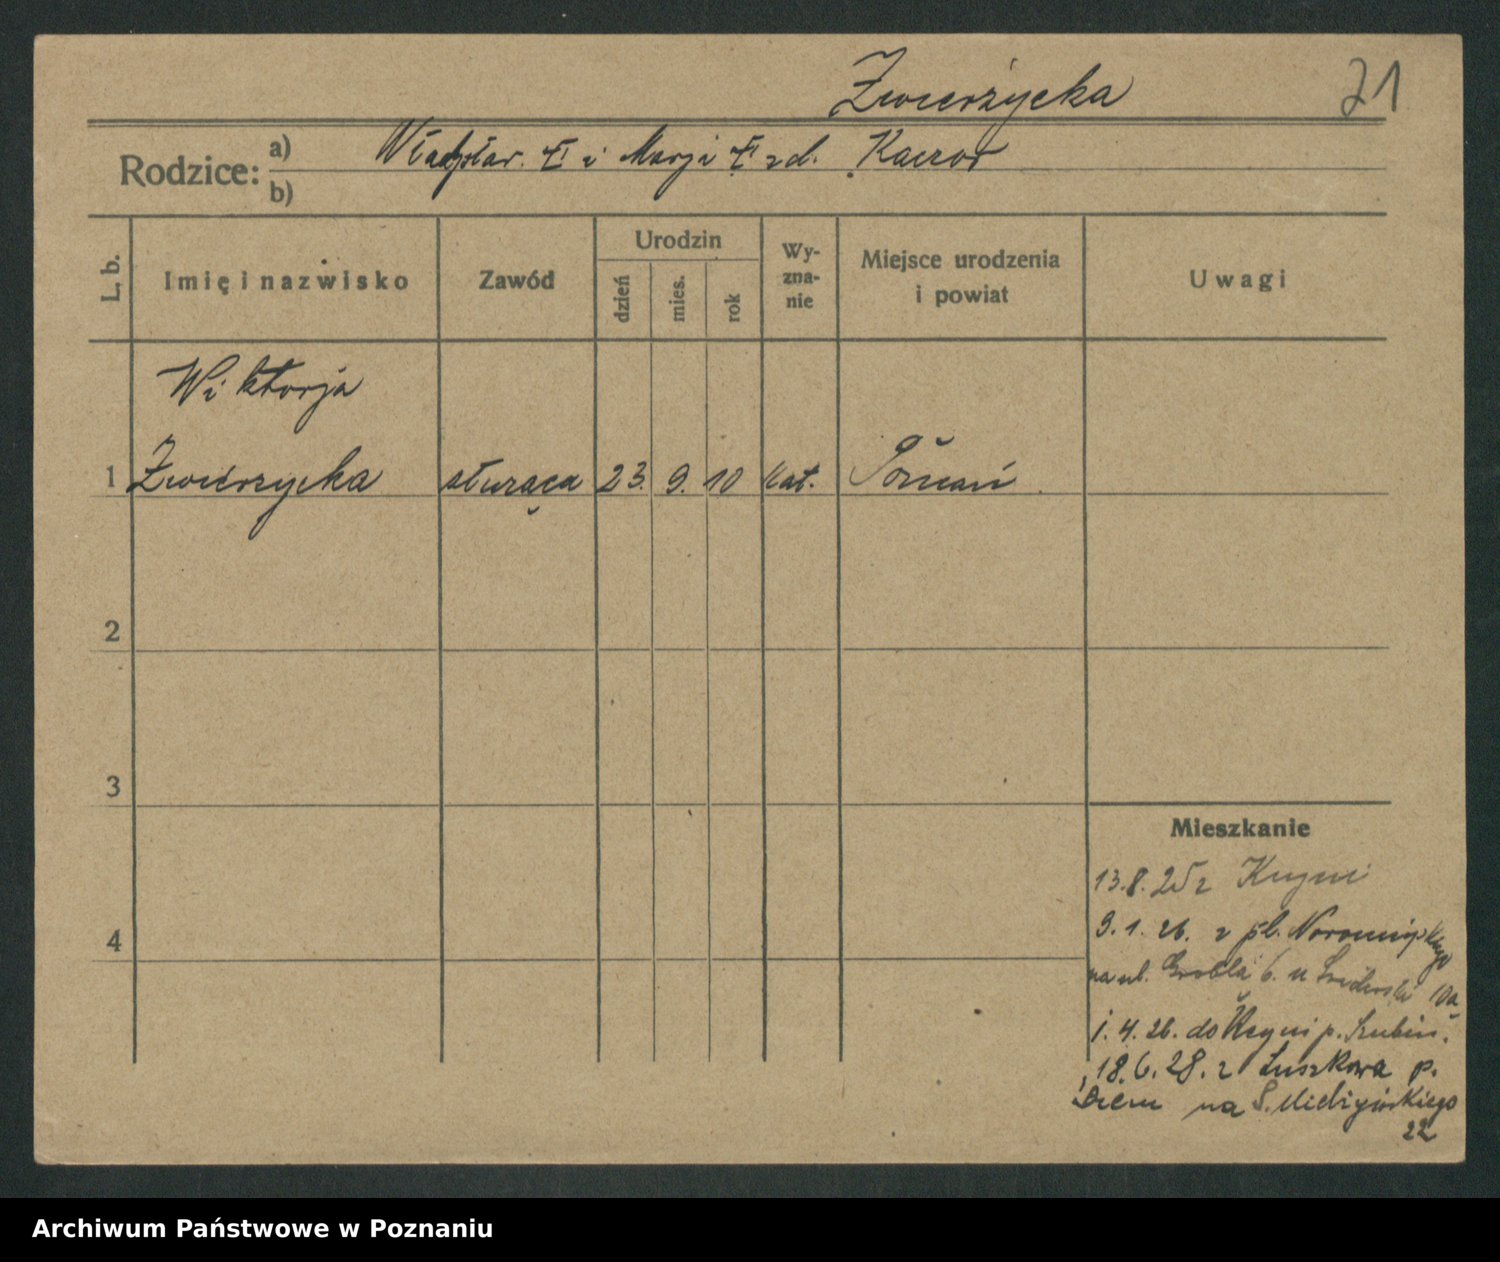 Zwierzycka
21
Rodzice: a) Władysław. † i Marji † zd. Kaczor
b)
L. b. Imię i nazwisko Zawód Urodzin dzień mies. rok Wy-zna-nie Miejsce urodzenia i powiat Uwagi
Wiktorja
1 Zwierzycka służąca 23. 9. 10 kat. Poznań
2
3
Mieszkanie
13.8.25 z Kcyni
4
9.1.26. z pl. Nowomiejskiego
na ul. Grobla 6. u 10a
1.4.26. do Kcyni p. Szubin.
18.6.28. z Łuszkowa p.
Śrem na S. Mielżyńskiego
22
Archiwum Państwowe w Poznaniu